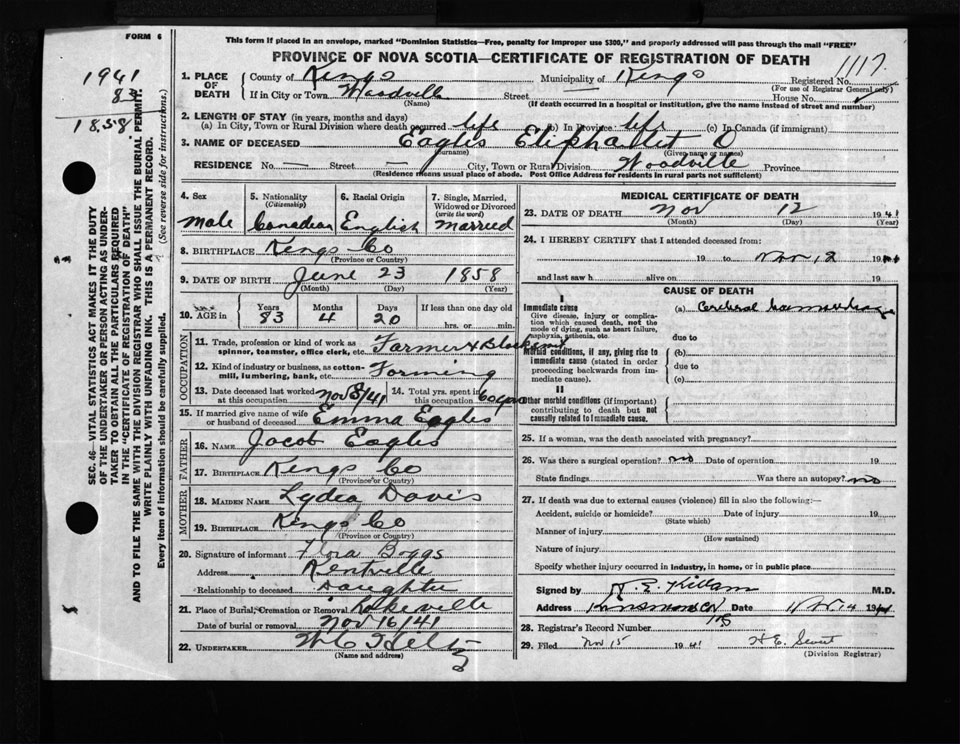 FORM 6
This form if placed in an envelope, marked "Dominion Statistics—Free, penalty for improper use $300," and properly addressed will pass through the mail "FREE"
PROVINCE OF NOVA SCOTIA—CERTIFICATE OF REGISTRATION OF DEATH
1117
1941
83
1858
1. PLACE OF DEATH
County of Kings Municipality of Kings Registered No.
(For use of Registrar General only)
If in City or Town Woodville Street House No.
(Name) (If death occurred in a hospital or institution, give the name instead of street and number)
2. LENGTH OF STAY (in years, months and days)
(a) In City, Town or Rural Division where death occurred life (b) In Province life (c) In Canada (if immigrant)
3. NAME OF DECEASED Eagles Eliphallet D
(Surname) (Given name or names)
RESIDENCE No. — Street — City, Town or Rural Division Woodville Province
(Residence means usual place of abode. Post Office Address for residents in rural parts not sufficient)
4. Sex
Male
5. Nationality
(Citizenship)
Canadian
6. Racial Origin
English
7. Single, Married, Widowed or Divorced
(write the word)
Married
8. BIRTHPLACE Kings Co
(Province or Country)
9. DATE OF BIRTH June 23 1858
(Month) (Day) (Year)
10. AGE in Years Months Days If less than one day old
83 4 20 hrs. or min.
OCCUPATION
11. Trade, profession or kind of work as spinner, teamster, office clerk, etc. Farmer & Blacksmith
12. Kind of industry or business, as cotton-mill, lumbering, bank, etc. Farming
13. Date deceased last worked at this occupation Nov 8/41
14. Total yrs. spent in this occupation 60 years
15. If married give name of wife or husband of deceased Emma Eagles
FATHER
16. NAME Jacob Eagles
17. BIRTHPLACE Kings Co
(Province or Country)
MOTHER
18. MAIDEN NAME Lydia Davis
19. BIRTHPLACE Kings Co
(Province or Country)
20. Signature of informant Flora Boggs
Address Kentville
Relationship to deceased Daughter
21. Place of Burial, Cremation or Removal Lakeville
Date of burial or removal Nov 16/41
22. UNDERTAKER W C
(Name and address)
MEDICAL CERTIFICATE OF DEATH
23. DATE OF DEATH Nov 12 1941
(Month) (Day) (Year)
24. I HEREBY CERTIFY that I attended deceased from:
19 to Nov 12 1941
and last saw h alive on 19
CAUSE OF DEATH
I
Immediate cause
Give disease, injury or complication which caused death, not the mode of dying, such as heart failure, asphyxia, asthenia, etc.
(a) Cerebral
due to
Morbid conditions, if any, giving rise to immediate cause (stated in order proceeding backwards from immediate cause).
(b)
due to
(c)
II
Other morbid conditions (if important) contributing to death but not causally related to immediate cause.
25. If a woman, was the death associated with pregnancy?
26. Was there a surgical operation? no Date of operation 19
State findings Was there an autopsy? no
27. If death was due to external causes (violence) fill in also the following:—
Accident, suicide or homicide? Date of injury 19
(State which)
Manner of injury
(How sustained)
Nature of injury
Specify whether injury occurred in industry, in home, or in public place
Signed by R. E. Killam M.D.
Address Date Nov 14 1941
28. Registrar's Record Number 105
29. Filed Nov 15 1941 H E
(Division Registrar)
SEC. 46—VITAL STATISTICS ACT MAKES IT THE DUTY
OF THE UNDERTAKER OR PERSON ACTING AS UNDER-
TAKER TO OBTAIN ALL THE PARTICULARS REQUIRED
IN THE "CERTIFICATE OF REGISTRATION OF DEATH"
AND TO FILE THE SAME WITH THE DIVISION REGISTRAR WHO SHALL ISSUE THE BURIAL PERMIT.
WRITE PLAINLY WITH UNFADING INK. THIS IS A PERMANENT RECORD.
Every item of information should be carefully supplied. (See reverse side for instructions.)